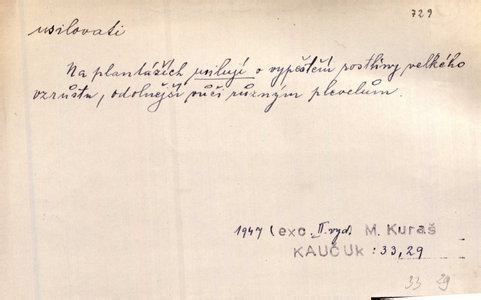 729
usilovati
Na plantážích usilují o vypěstění rostliny velkého
vzrůstu, odolnější vůči různým plevelům.
1947 (exc. II. vyd) M. Kuraš
KAUČUK : 33, 29
33 29